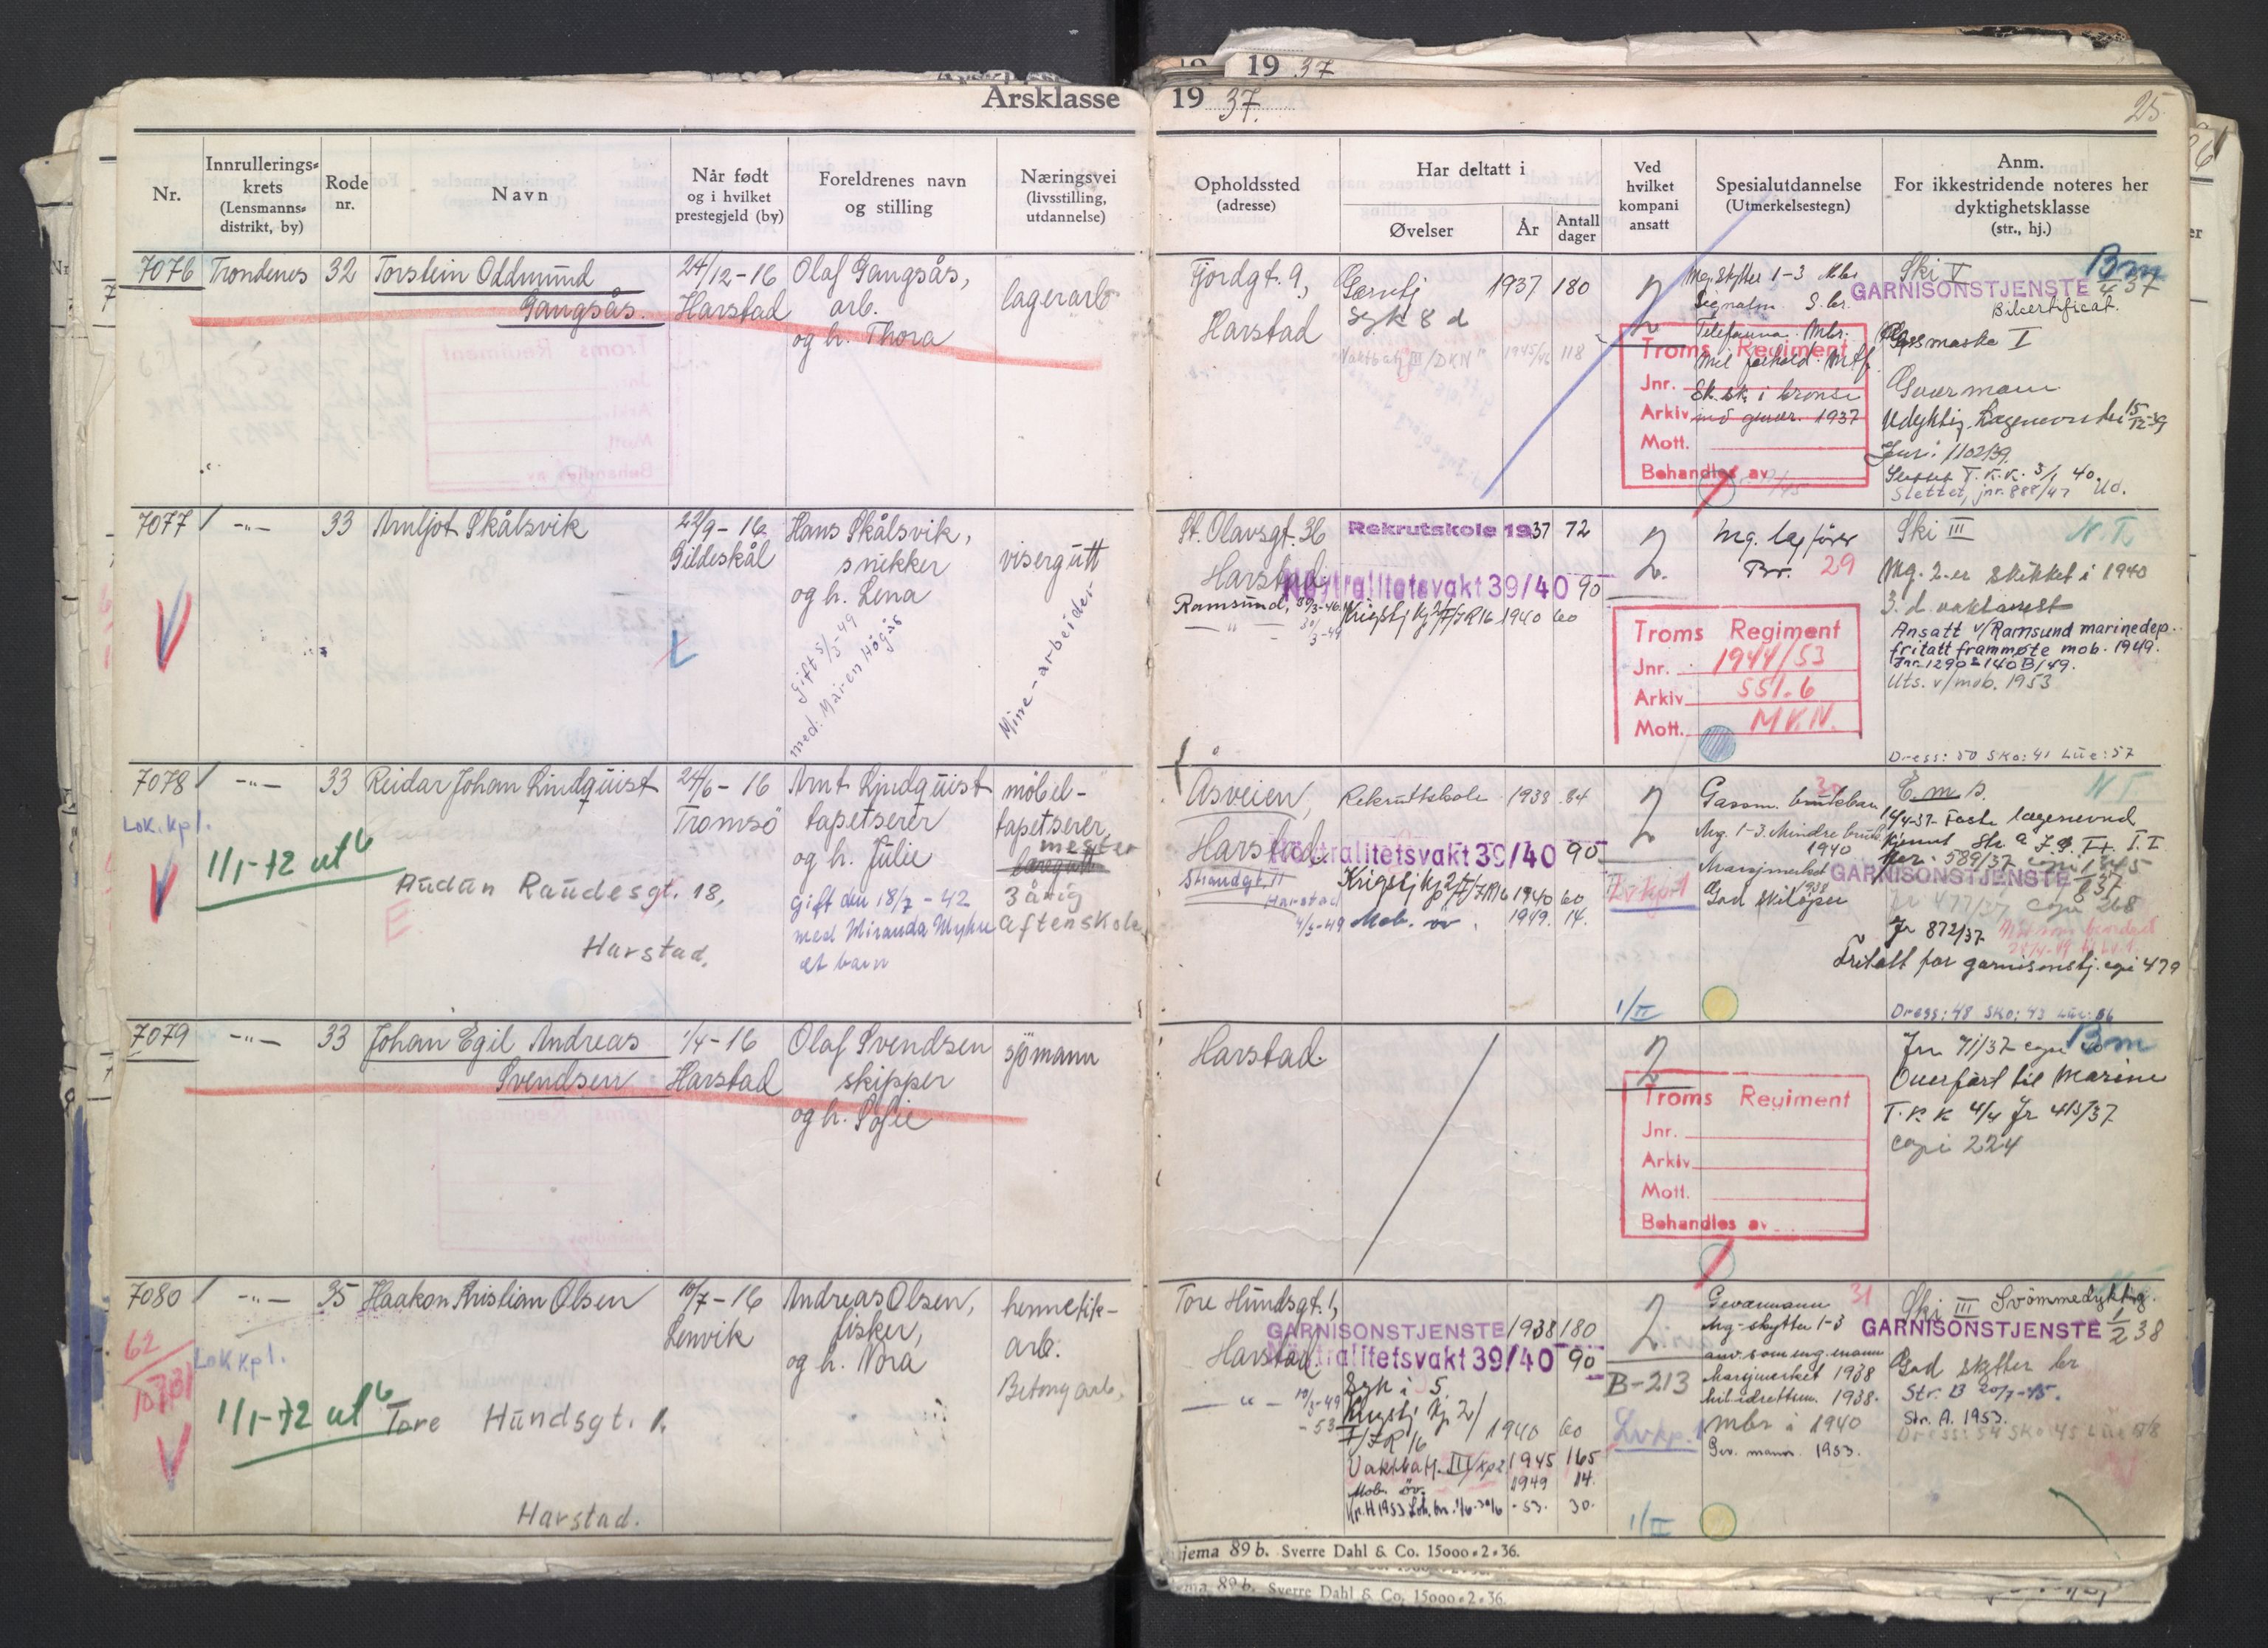 19 37
Årsklasse 19 37.
25
Nr.
Innrullerings-
krets
(Lensmanns-
distrikt, by)
Rode
nr.
Navn
Når født
og i hvilket
prestegjeld (by)
Foreldrenes navn
og stilling
Næringsvei
(livsstilling,
utdannelse)
Opholdssted
(adresse)
Har deltatt i
Øvelser
År
Antall
dager
Ved
hvilket
kompani
ansatt
Spesialutdannelse
(Utmerkelsestegn)
Anm.
For ikkestridende noteres her
dyktighetsklasse
(str., hj.)
7076 Trondenes 32 Torstein Oddmund
Gangsås.
24/12-16
Harstad
Olaf Gangsås,
arb.
og h. Thora
lagerarb.
Fjordgt. 9,
Harstad
1937 180
Syk 8 d
Vaktbatj III/DKN 1945/46 118
2
Mg. skytter 1-3
Troms Regiment
Jnr.
Arkiv
Mott.
Behandles av
Sk.sk. i bronse
1937
Ski V
Bm
GARNISONSTJENSTE 37
Bilcertificat.
Gassmaske I
Gevermann
Udyktig. 15/12-39
Jnr: 1102/39.
T.K.K. 3/1 40.
Slettet, jnr. 888/47 Ud.
7077 -"- 33 Arnljot Skålsvik
22/9-16
Gildeskål
Hans Skålsvik,
snekker
og h. Lena
gift 5/3-49
med: Maren Høgås
visergutt
Mine-arbeider
St. Olavsgt. 36
Harstad
Ramsund, 30/3-46
-"- 30/3-49
Rekrutskole 1937 72
Nøytralitetsvakt 39/40 90
Krigstj Kp 2/I/IR16 1940 60
2.
Mg. lagfører
Br. 29
Troms Regiment
Jnr. 1944/53
Arkiv 551.6
Mott. MV.N.
Ski III
N.T.
Mg. 2.er skikket i 1940
3. d. vaktarrest
Ansatt v/Ramsund marinedep.
fritatt frammøte mob. 1949.
Jnr. 1290 140B/49.
Uts. v/mob. 1953
Dress: 50 Sko: 41 Lue: 57
7078 -"- 33 Reidar Johan Lindquist
Lok.kpl.
1/1-72 ut
Audun Raudesgt. 18,
E.
Harstad.
24/6-16
Tromsö
Arnt Lindquist
tapetserer
og h. Julie
gift den 18/7-42
med Miranda Myhre
et barn
möbel-
tapetserer,
mester
3 årig
aftenskole
Åsveien,
Harstad.
Strandgt. 11
Harstad
4/3-49
Rekruttskole 1938 84
Nøytralitetsvakt 39/40 90
Krigstj Kp 2/I/IR16 1940 60
Mob. öv. 1949. 14.
2
1/II
Gassm. brukbar
Mg. 1-3. Mindre bruk
1940
Marsjmerket
1938
God skilöper
N T
14/4-37
589/37
GARNISONSTJENSTE 37
Jr 477/37 copi 268
Jr 872/37
Fritatt for garnisonstj. copi 479
Dress: 48 Sko: 43 Lue: 56
7079 -"- 33 Johan Egil Andreas
Svendsen
1/4-16
Harstad
Olaf Svendsen
skipper
og h. Sofie
sjömann
Harstad.
2
Troms Regiment
Jnr.
Arkiv
Mott.
Behandles av
Bm
Jnr 71/37 copi 40
Overfört til Marine
T.K.K 4/4 Jr 413/37
copi 224
7080 -"- 35 Haakon Kristian Olsen
62
LOK kpl.
1/1-72 ut
Tore Hundsgt. 1.
Harstad.
10/7-16
Lenvik
Andreas Olsen,
fisker,
og h. Nora
hermetik-
arb.
Betongarb.
Tore Hundsgt. 1,
Harstad.
-"- 10/3-49
-53
GARNISONSTJENSTE 1938 180
Nøytralitetsvakt 39/40 90
Syk i 5.
Krigstj Kp 2/
I/IR 16 1940 60
Vaktbatj. III/Kp2 1945 165
Mob. öv. 1949 14.
-53. 30.
2.
B-213
Lvkp. 1
1/II
Gevermann 31
Mg-skytter 1-3
anv. som mg.mann
Marsjmerket 1938
Mil.idrettsm. 1938.
mbr i 1940
Gev. mann. 1953.
Ski III Svömmedyktig.
GARNISONSTJENSTE 1/2 38
God skytter br
Str. B 20/7-45.
Str. A. 1953.
Dress: 54 Sko 45 Lue 58
Skjema 89 b. Sverre Dahl & Co. 15000-2-36.
89 b. Sverre Dahl & Co. 15000-2-36.